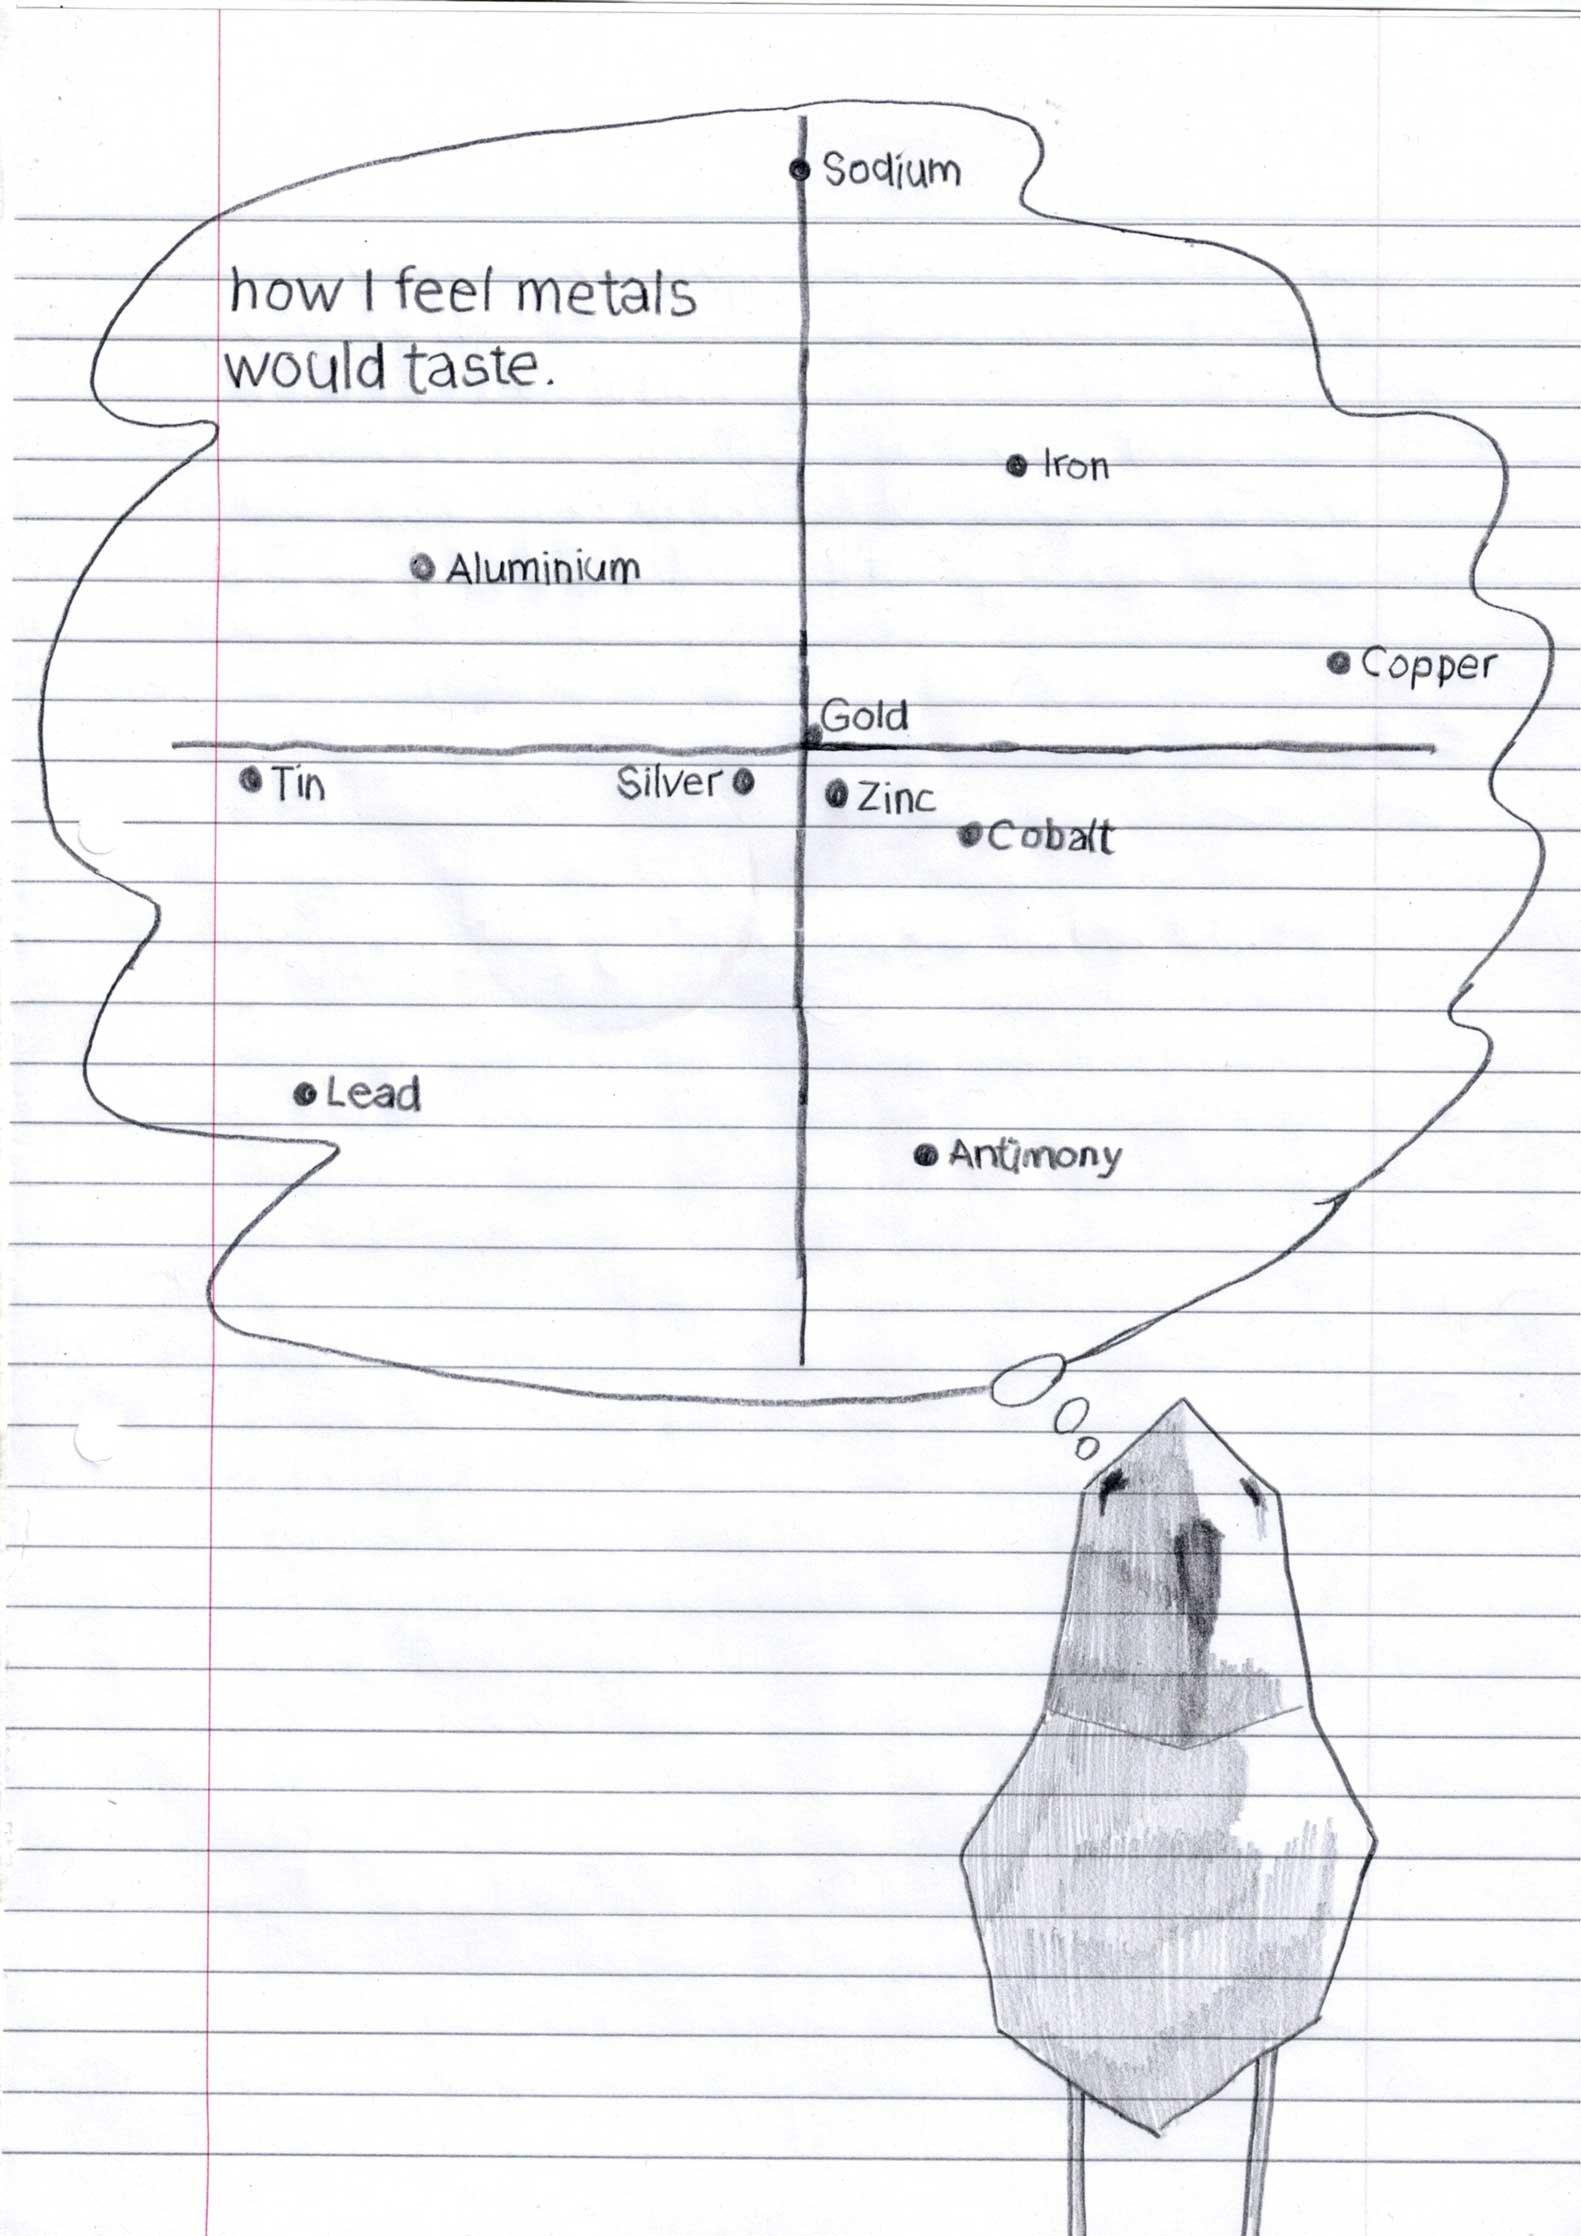 Sodium
how I feel metals
would taste.
Iron
Aluminium
Copper
Gold
Tin
Silver
Zinc
Cobalt
Lead
Antimony